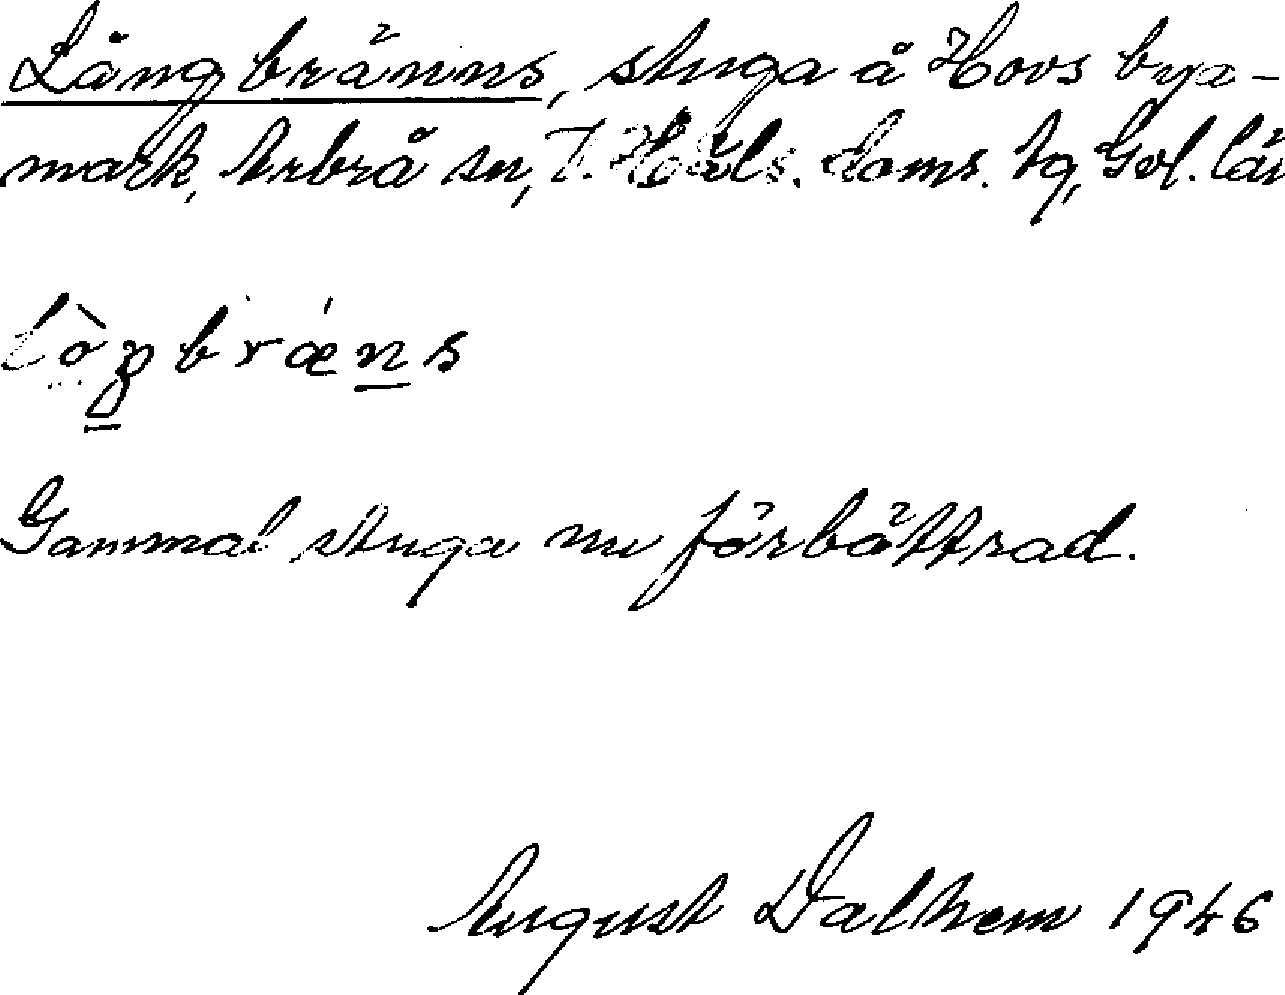 Långbränns, stuga å Hovs bya-
mark, Arbrå sn, V. Häls. doms. tg, Gvl. län
Gammal stuga nu förbättrad.
August Dalhem 1946